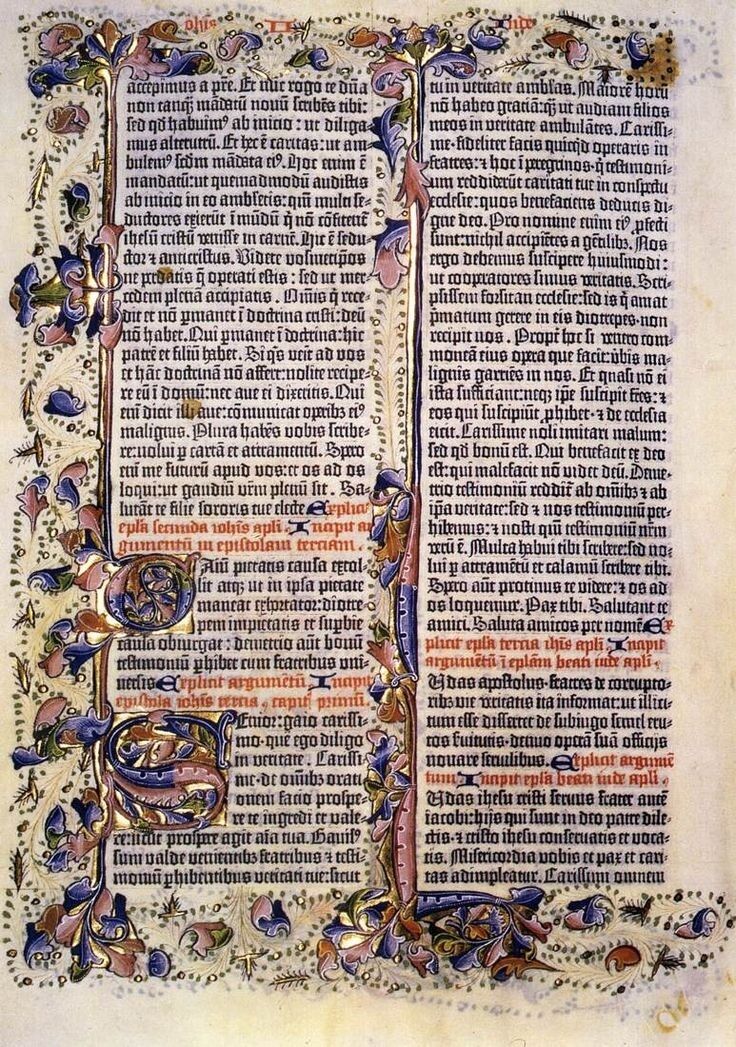 ohis II Iude
accepimus a pr̄e. Et nūc rogo te dn̄a
non tanq̄ mādatū novū scribēs tibi:
sed qd̄ habuim⁹ ab inicio: ut diliga-
mus alterutrū. Et hec ē caritas: ut am-
bulem⁹ scdm mādata ei⁹. Hoc enim ē
mandatū: ut quemadmodū audistis
ab inicio in eo ambletis: qm̄ multi se-
ductores exierūt ī mūdū q̄ nō cōfitent̄
ihesum cristū venisse in carnē. Hic ē sedu-
ctor et anticristus. Videte vosmetipos
ne perdatis q̄ operati estis: sed ut mer-
cedem plenā accipiatis. Omīs q̄ rece-
dit et nō permanet ī doctrina cristi: deū
nō habet. Qui permanet ī doctrina: hic
patrē et filiū habet. Si q̄s venit ad vos
et hāc doctrinā nō affert: nolite recipe-
re eū ī domū: nec ave ei dixeritis. Qui
enī dicit illi ave: cōmunicat operibꝫ ei⁹
malignis. Plura habēs vobis scribe-
re: nolui p̄ cartā et attramentū. Spero
enī me futurū apud vos: et os ad os
loqui: ut gaudiū vr̄m plenū sit. Sa-
lutāt te filie sororis tue electe Explicit
epl̄a secunda iohīs apl̄i. Incipit ar-
gumentū in epistolam terciam.
Gaiū pietatis causa extol-
lit atq; ut in ipsa pietate
maneat exhortator: diotre-
pem impietatis et superbie
causa obiurgat: demetrio aūt bonū
testimoniū perhibet cum fratribus uni-
versis Explicit argumētū Incipit
epistola iohīs tercia. capit. primū.
Senior: gaio carissi-
mo. quē ego diligo
in veritate. Carissi-
me. de omībꝫ orati-
onem facio prospe-
re te ingredi et vale-
re: sicut prospere agit aīa tua. Gavis⁹
sum valde venientibꝫ fratribus et testi-
moniū perhibentibus veritati tue: sicut
tu in veritate amblas. Maiorē horū
nō habeo gratiā: q̄ ut audiam filios
meos in veritate ambulātes. Carissi-
me. fideliter facis quicq̄d operaris in
fratres: et hoc ī peregrinos. q̄ testimoni-
um reddiderūt caritati tue in conspectu
ecclesie: quos benefaciens deducis di-
gne deo. Pro nomine enim ei⁹ profecti
sunt: nichil accipiētes a gētilibꝫ. Nos
ergo debemus suscipere huiusmodi:
ut cooperatores simus veritatis. Scri-
psissem forsitan ecclesie: sed is q̄ amat
primatum gerere in eis diotrepes. non
recipit nos. Propter hoc si venero com-
monēā eius opera que facit: verbis ma-
lignis garriēs in nos. Et quasi nō ei
ista sufficiant: neq; ip̄e suscipit fr̄es: et
eos qui suscipiūt prohibet. et de ecclesia
eicit. Carissime noli imitari malum:
sed qd̄ bonū est. Qui benefacit ex deo
est: qui malefacit nō videt deū. Deme-
trio testimoniū redditur ab omībꝫ et ab
ip̄a veritate: sed et nos testimoniū per-
hibemus: et nosti qm̄ testimoniū nr̄m
verū ē. Multa habui tibi scribere: sed no-
lui p̄ attramētū et calamū scribere tibi.
Spero aūt protinus te videre: et os ad
os loquemur. Pax tibi. Salutant te
amici. Saluta amicos per nomē Ex-
plicit epl̄a tercia ihīs apl̄i Incipit
argumētū ī epl̄am beati iude apl̄i.
Iudas apostolus. fratres de corrupto-
ribꝫ vie veritatis ita informat: ut illici-
tum esse dissereret de subiugo semel eru-
tos fuitutis. denuo operam suā officijs
novare servilibus. Explicit argumē-
tum. Incipit epl̄a beati iude apl̄i.
Iudas ihesu cristi servus frater autē
iacobi: hijs qui sunt in deo patre dile-
ctis. et cristo ihesu conservatis et voca-
tis. Misericordia vobis et pax et cari-
tas adimpleatur. Carissimi omnem